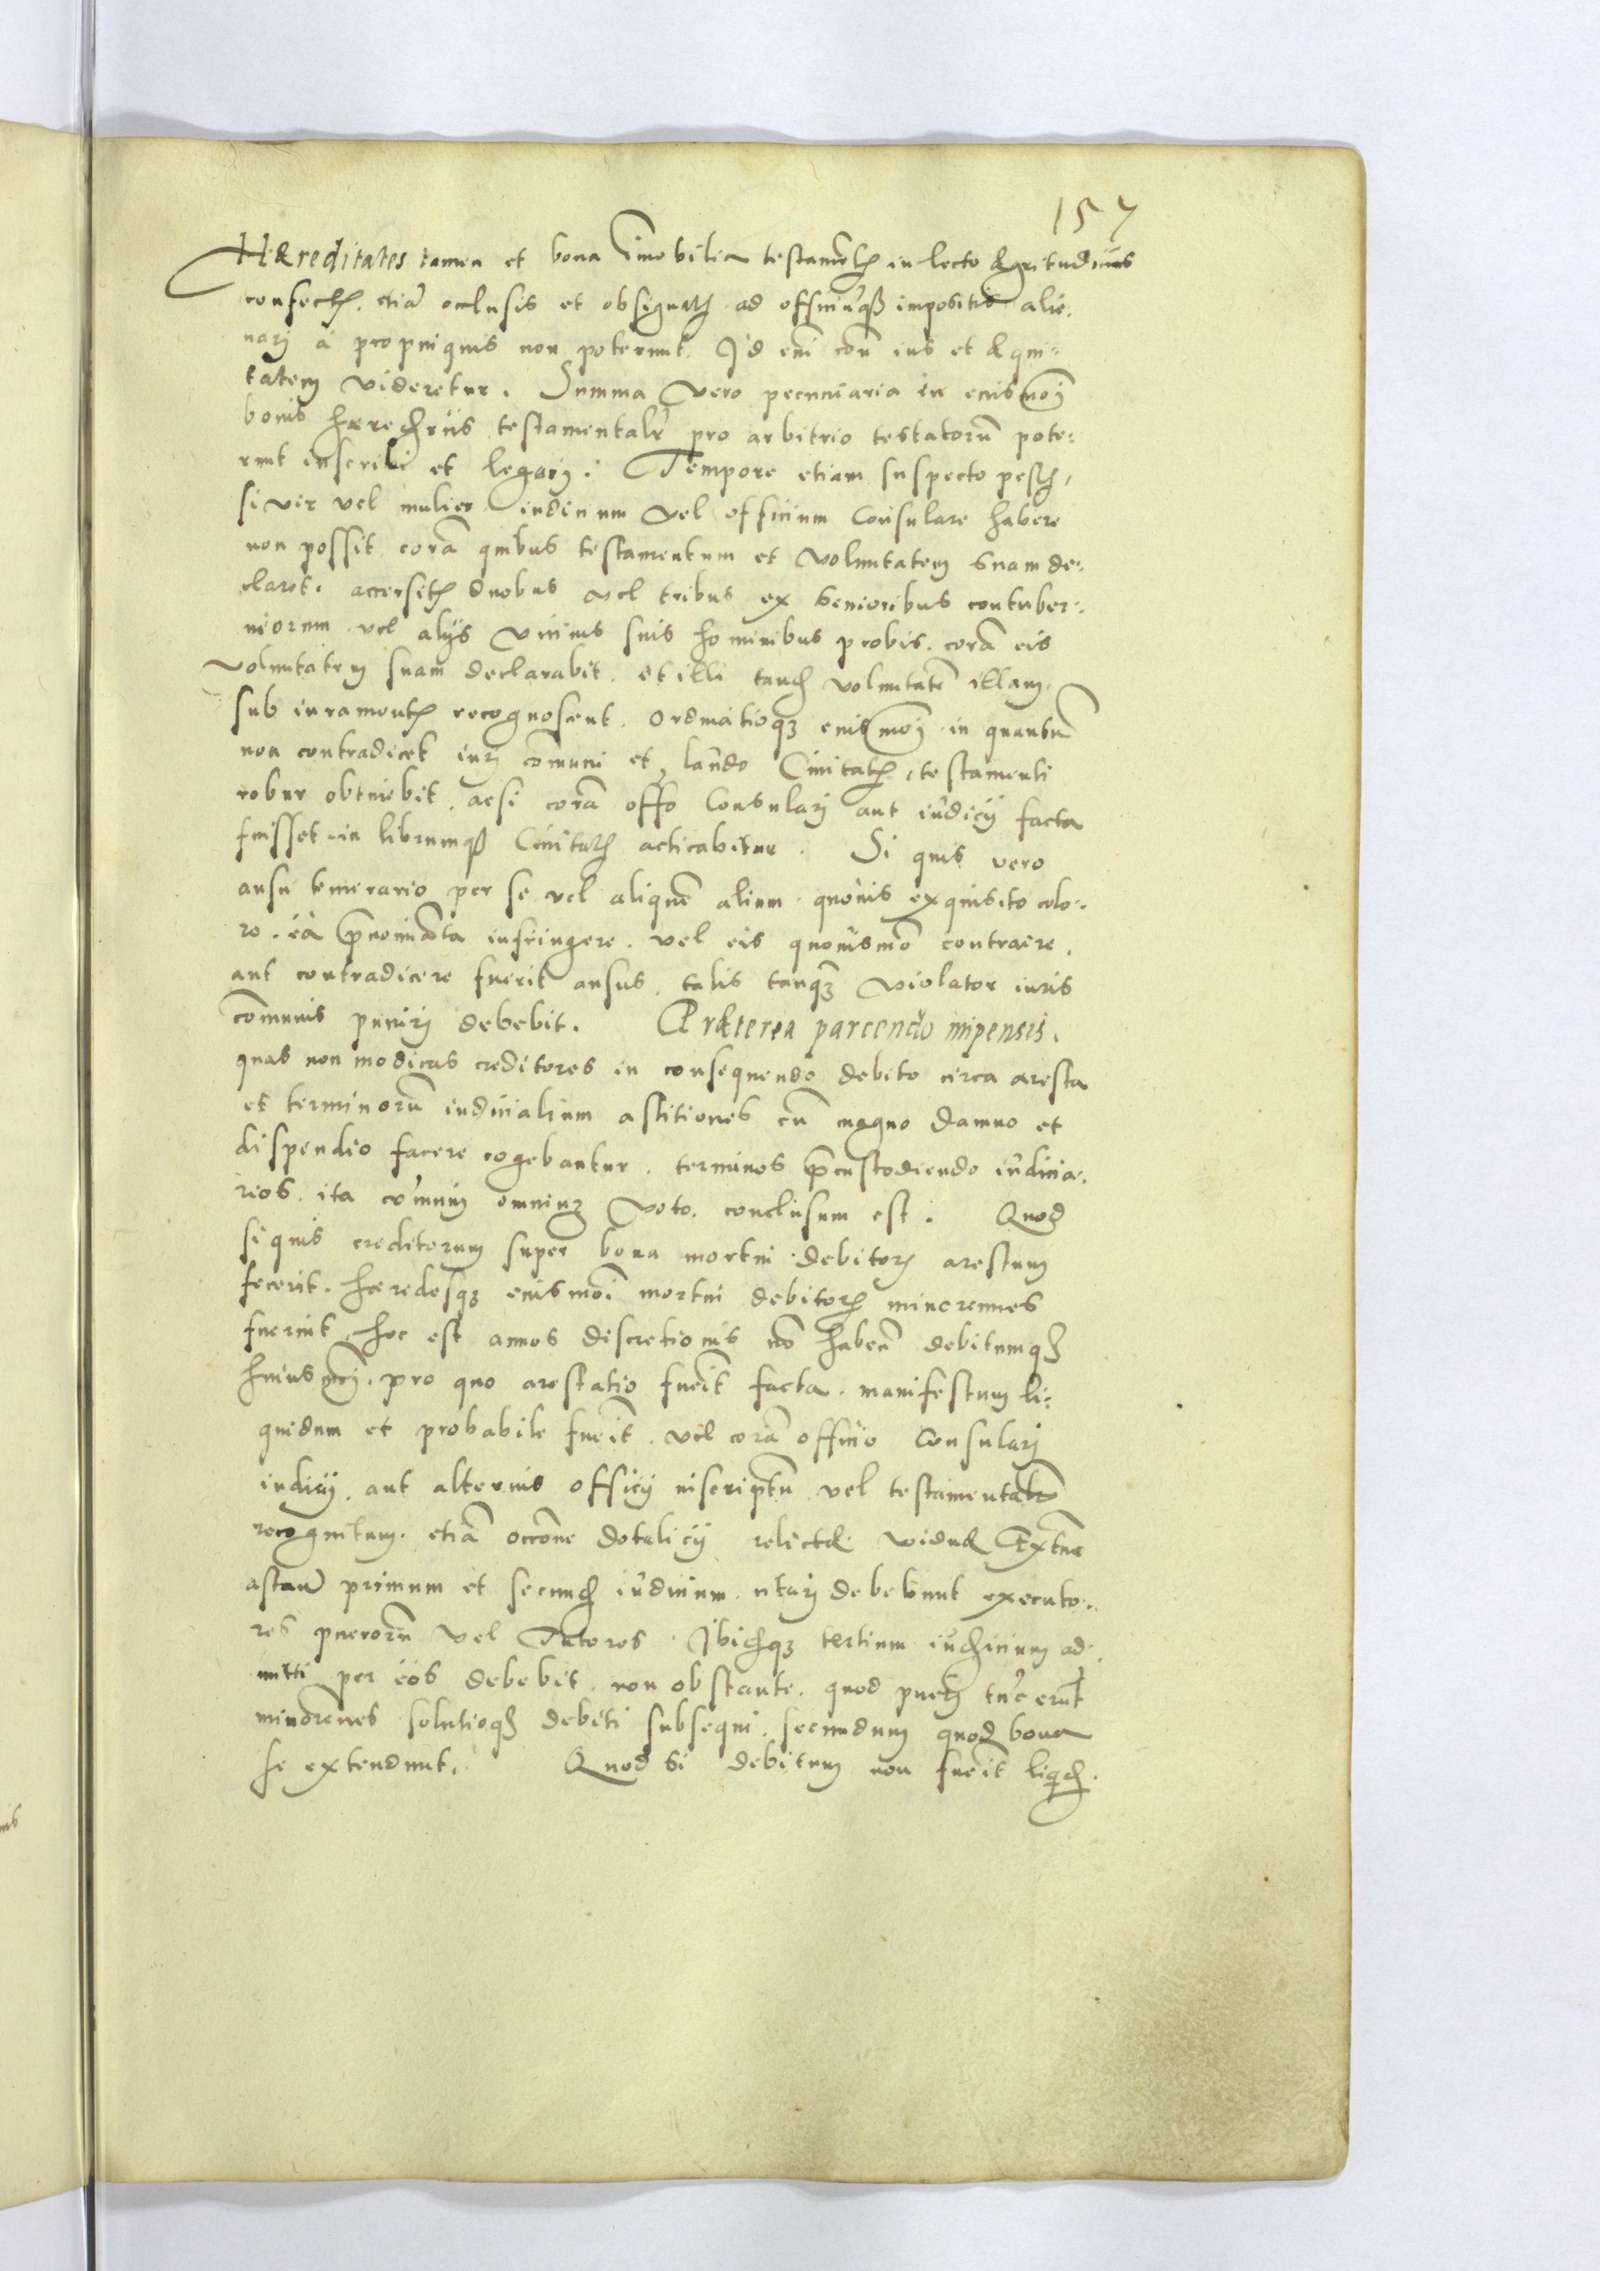 157
Hæreditates tamen et bona im̄obilia testamētis in lecto ægritudinis
confectis, etiā oclusis et obsignatis ad officiūqȝ impositis alie-
nari à propinquis non poterunt. Id eni con ius et æqui-
tatem videretur. Summa vero pecuniaria in eiusmoi
bonis hæreditariis testamentalr pro arbitrio testatorū pote-
runt inscribi et legari. Tempore etiam suspecto pestis,
si vir vel mulier iudicium vel officium Consulare habere
non possit corā quibus testamentum et voluntatem suam de-
claret. accersitis duobus vel tribus ex senioribus contuber-
niorum vel alijs vicinis suis hominibus probis. corā eis
voluntatem suam declarabit. et illi tandem voluntatē illam
sub iuramentis recognoscent. Ordinatioqȝ eiusmoi in quantū
non contradicet iuri comuni et laudo Ciuitatis, testamenti
robur obtinebit. acsi corā offo Consulari aut iudicij facta
fuisset in librumqȝ Ciuitatis acticabitur. Si quis vero
ausu temerario per se vel aliquē alium quouis exquisito colo-
re. ea p̄nominata infringere. vel eis quouismo contraire.
aut contradicere fuerit ausus. talis tanqȝ violator iuris
comunis puniri debebit. Præterea parcendo impensis.
quas non modicas creditores in consequendo debito circa aresta
et terminorū iudicialium astitiones cū magno damno et
dispendio facere cogebantur. terminos p̄custodiendo iudicia-
rios. ita comuni omniuȝ voto. conclusum est. Quod
si quis creditorum super bona mortui debitoris arestum
fecerit. hæredesqȝ eiusmoi mortui debitoris minorennes
fuerint hoc est annos discretionis nō haben̄ debitumqȝ
huiusmoi. pro quo arestatio fuerit facta. manifestum li-
quidum et probabile fuerit. vel corā officio Consulari
iudicij. aut alterius officij inscriptū vel testamentalr
recognitum. etiā occone dotalicij relictæ viduæ Extunc
astan̄ primum et secund iudicium citari debebunt executo-
res puerorū vel Tutores. Ibidqȝ tertium iudicium ad-
mitti per eos debebit. non obstante. quod pueri tūc erūt
minorenes solutioqȝ debiti subsequi. secundum quod bona
se extendunt. Quod si debitum non fuerit liqd.